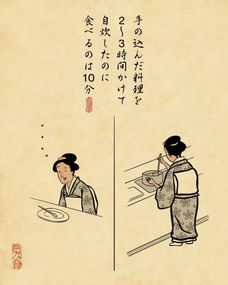 手の込んだ料理を
2〜3時間かけて
自炊したのに
食べるのは10分